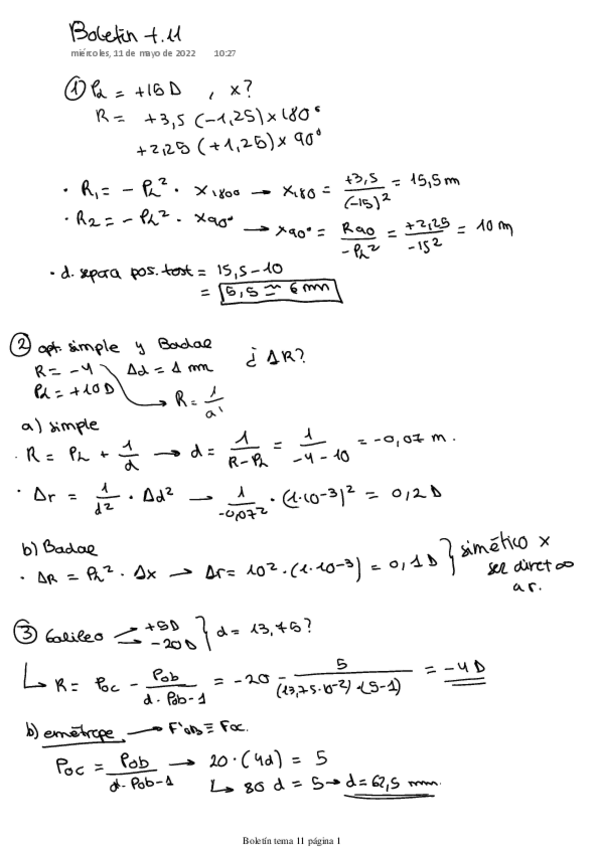 Boletín t.11
miércoles, 11 de mayo de 2022 10:27
① PL = +16D , x?
R = +3,5 (-1,25) x 180°
+2,25 (+1,25) x 90°
· R1 = - PL² · x180° → x180 = +3,5 / (-15)² = 15,5 m
· R2 = - PL² · x90° → x90° = R90 / -PL² = +2,25 / -15² = 10 m
· d. separa pos. test = 15,5 - 10
= 5,5 ≃ 6 mm
② opt. simple y Badal
R = -4 Δd = 1 mm ¿ ΔR?
PL = +10D → R = 1 / a'
a) simple
· R = PL + 1/d → d = 1 / R-PL = 1 / -4-10 = -0,07 m.
· Δr = 1/d² · Δd² → 1 / -0,07² · (1·10-3)² = 0,2 D
b) Badal
· ΔR = PL² · Δx → Δr = 10² · (1·10-3) = 0,1 D } simético x
ser direct ∞
a r.
③ Galileo → +5D → -20D } d = 13,75?
↳ R = Poc - Pob / d·Pob-1 = -20 - 5 / (13,75·10-2)·(5-1) = -4 D
b) emétrope → F'ob ≡ Foc.
Poc = Pob / d·Pob-1 → 20·(4d) = 5
↳ 80 d = 5 → d = 62,5 mm.
Boletín tema 11 página 1